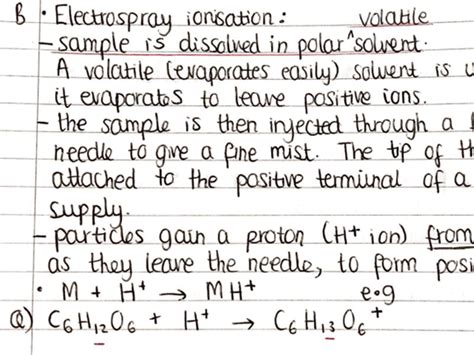 B • Electrospray ionisation: volatile
- sample is dissolved in polar ^ solvent.
A volatile (evaporates easily) solvent is u
it evaporates to leave positive ions.
- the sample is then injected through a
needle to give a fine mist. The tip of th
attached to the positive terminal of a
supply.
- particles gain a proton (H⁺ ion) from
as they leave the needle, to form posi
• M + H⁺ → MH⁺ e.g
Q) C₆H₁₂O₆ + H⁺ → C₆H₁₃O₆⁺